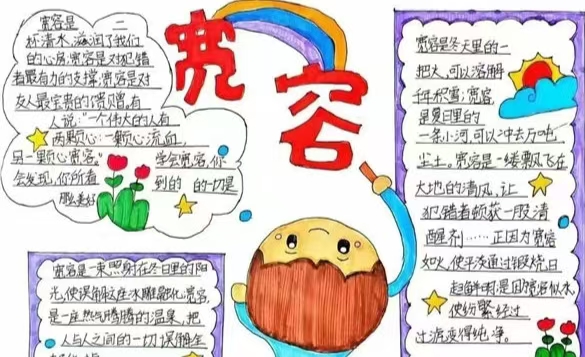 宽容
宽容是一
杯清水,滋润了我们
的心房;宽容是对犯错
者最有力的支撑;宽容是对
友人最宝贵的馈赠。有
人说:"一个伟大的人有
两颗心:一颗心流血,
另一颗心宽容。"学会宽容,你
会发现,你所看到的一切是
那么美好
宽容是冬天里的一
把火,可以溶解
千年积雪;宽容
是夏日里的
一条小河,可以冲去万吨
尘土。宽容是一缕飘飞在
大地的清风,让
犯错者顿获一股清
醒剂……正因为宽容
如火,使平凡通过锻烧,日
起鲜明;是因宽容似水,
使纷繁经过
过滤变得纯净。
宽容是一束照射在冬日里的阳
光,使误解这座冰雕融化;宽容
是一座热气腾腾的温泉,把
人与人之间的一切误解全